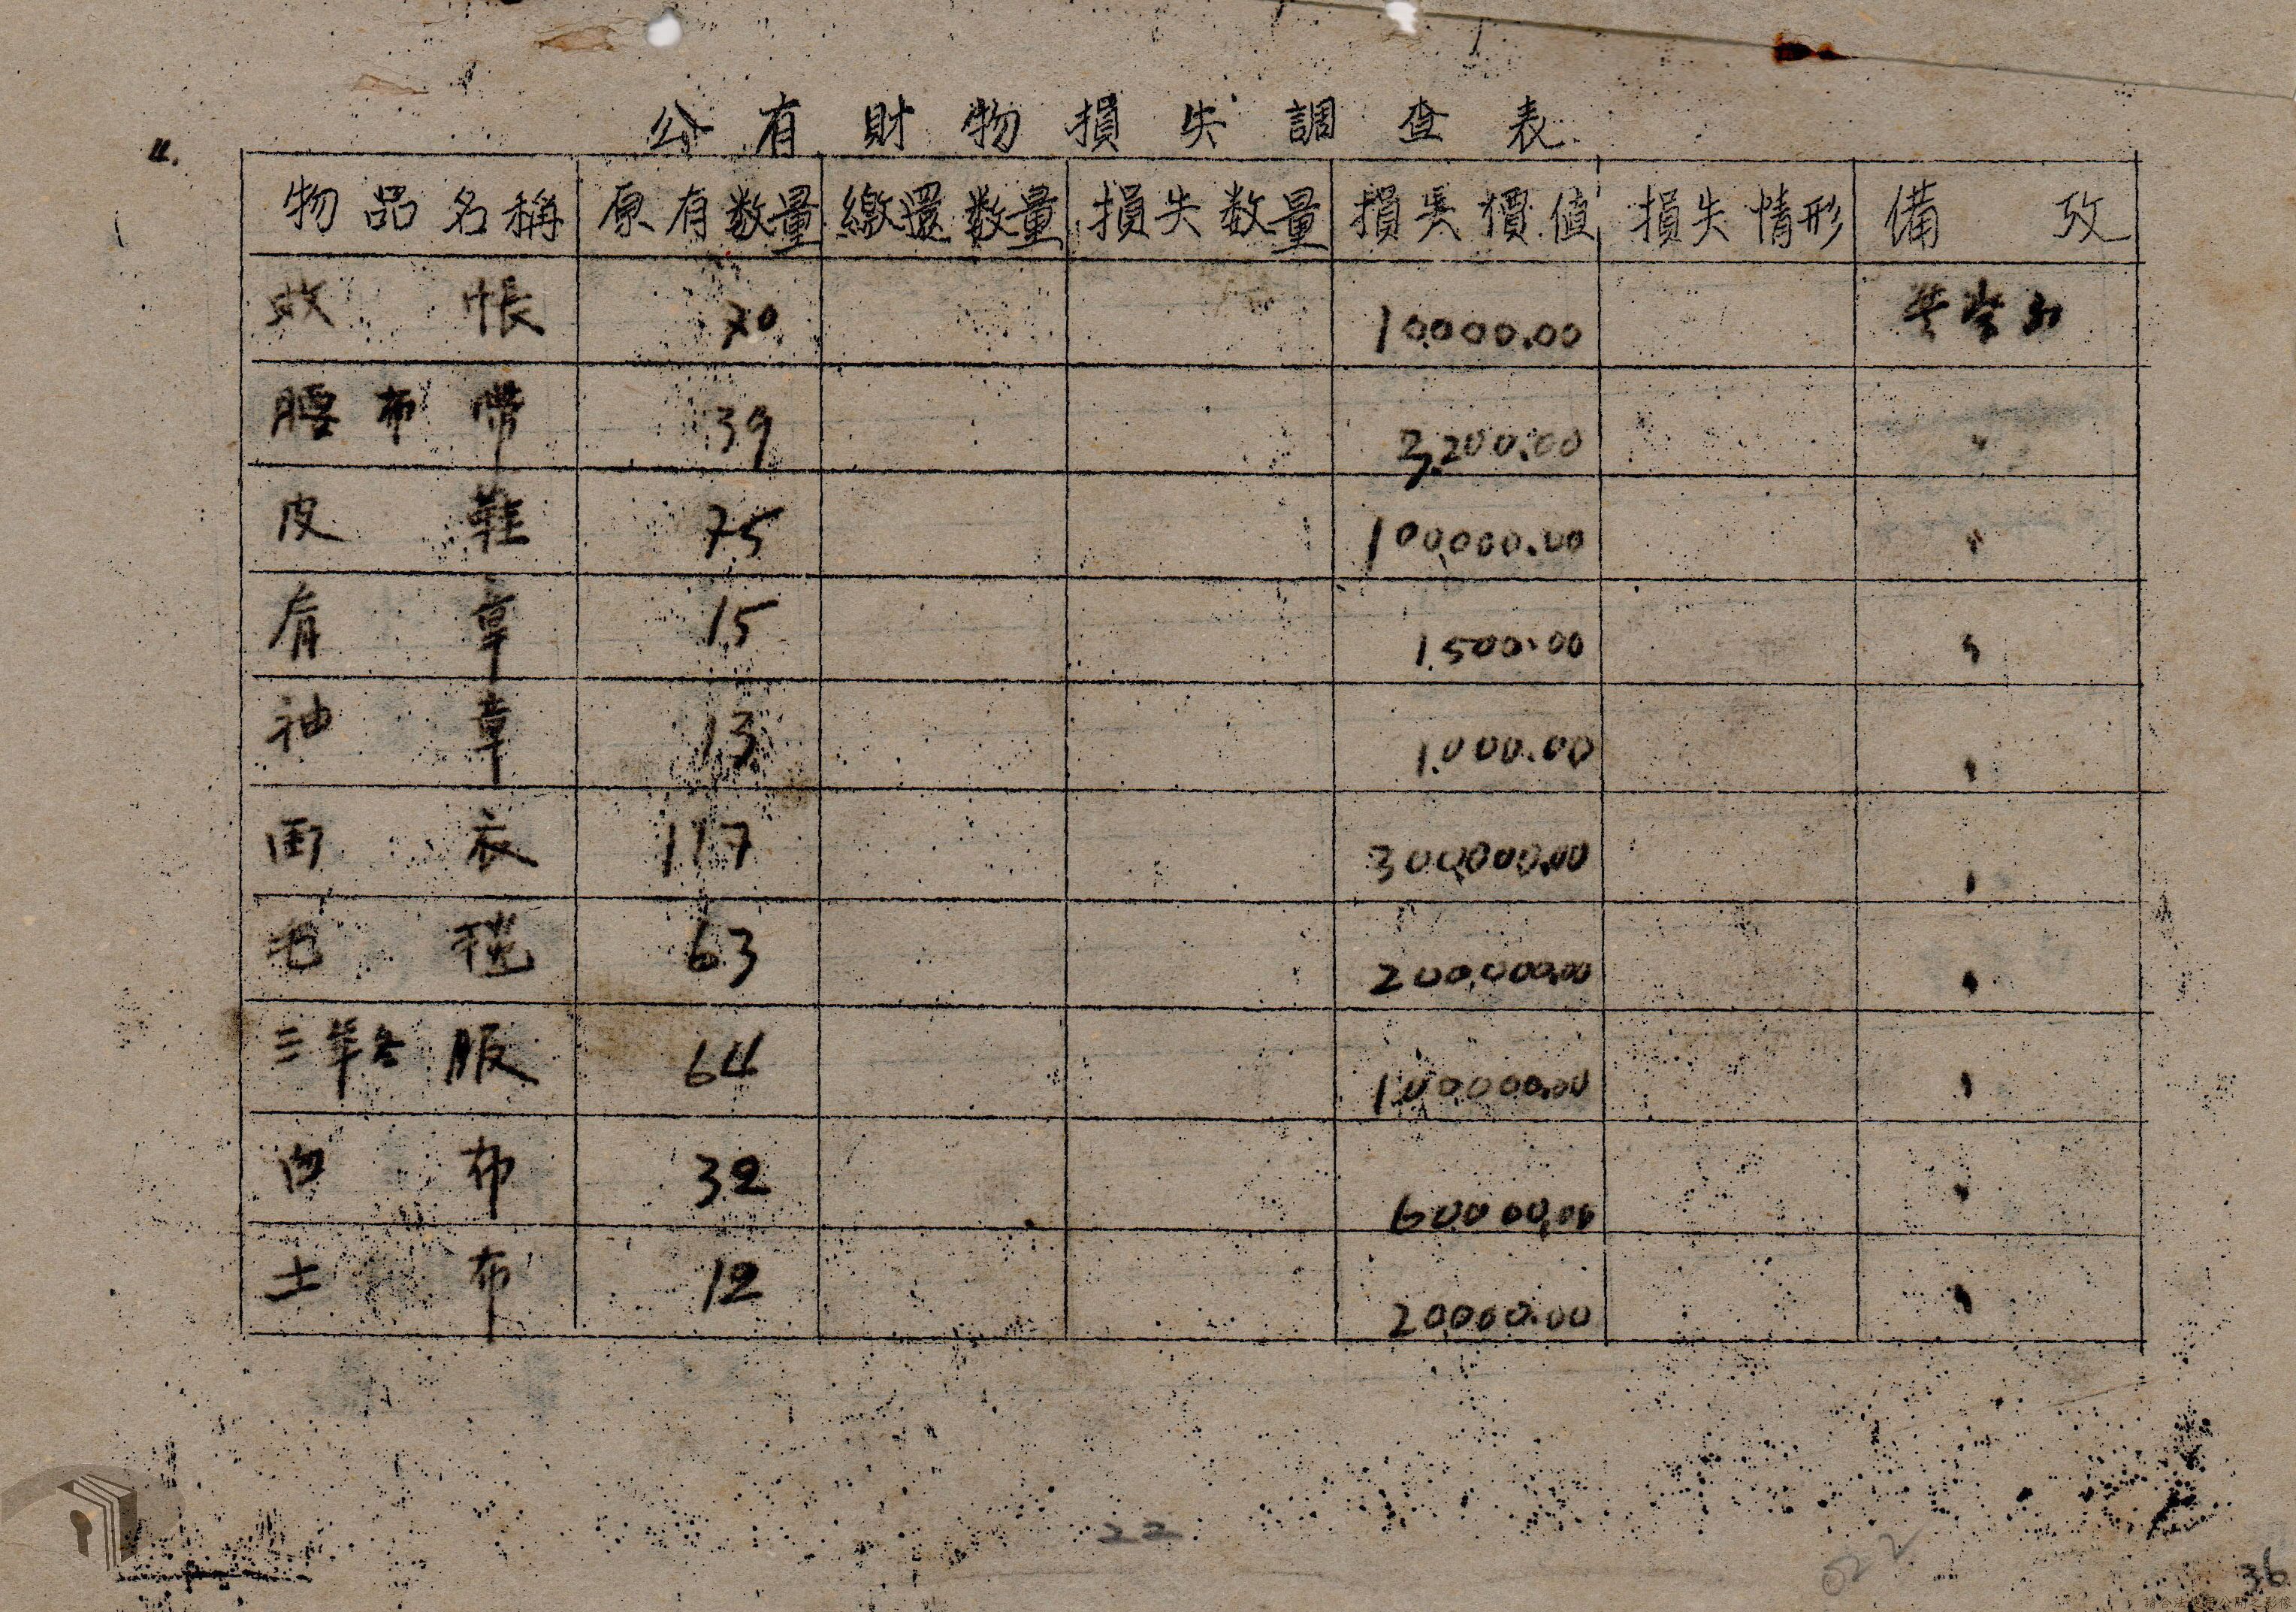 公有財物損失調查表
11.
物品名稱 原有数量 繳還数量 損失数量 損失價值 損失情形 備 攷
蚊帳 70 10,000.00
腰布帶 39 3,200.00 〃
皮鞋 75 100,000.00 〃
肩章 15 1,500.00 〃
袖章 13 1,000.00 〃
雨衣 117 300,000.00 〃
毛毯 63 200,000.00 〃
三年冬服 64 100,000.00 〃
白布 32 60,000.00 〃
土布 12 20,000.00 〃
22
022
36